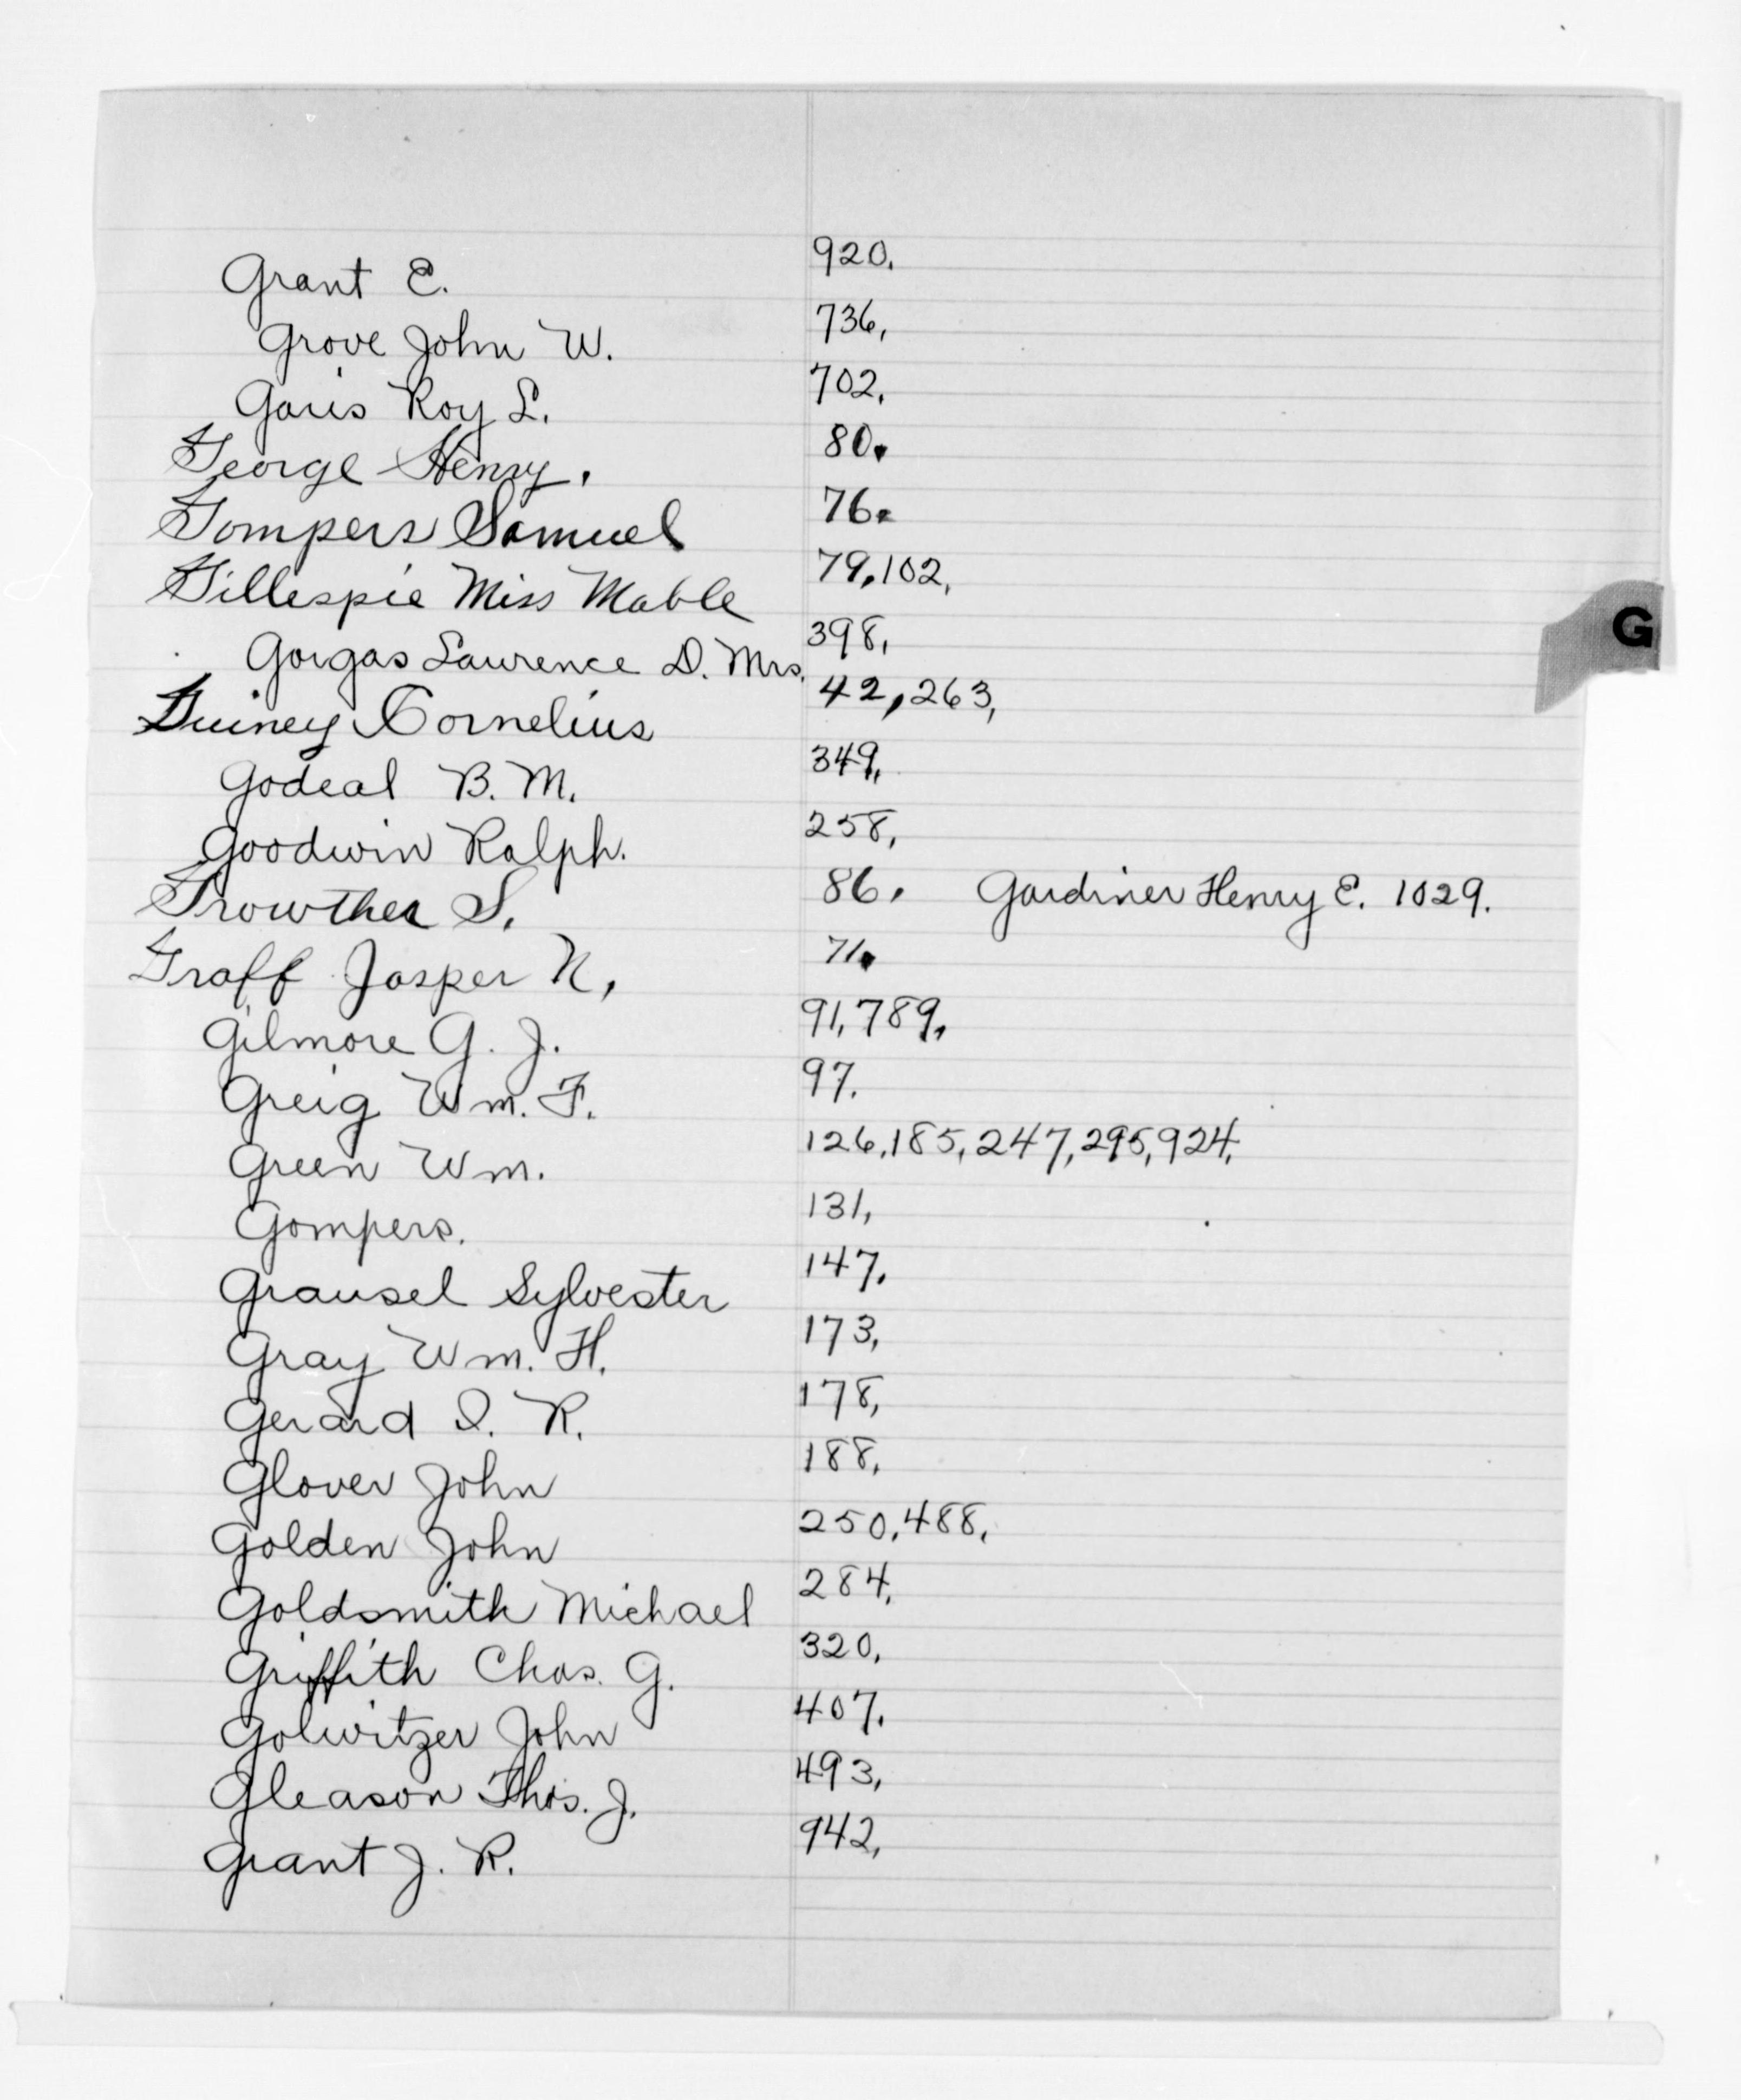 Grant E. 920.
Grove John W. 736,
Garis Roy L. 702.
George Henry. 80.
Gompers Samuel 76.
Gillespie Miss Mable 79,102,
Gorgas Lawrence D. Mrs. 398,
Guiney Cornelius 42,263,
Godeal B. M. 349,
Goodwin Ralph. 258,
Growther S. 86. Gardiner Henry E. 1029.
Graff Jasper N, 71.
Gilmore G. J. 91,789,
Greig Wm. F. 97.
Green Wm. 126,185,247,295,924,
Gompers. 131,
Grausel Sylvester 147.
Gray Wm. H. 173,
Gerard I. R. 178,
Glover John 188,
Golden John 250,488,
Goldsmith Michael 284,
Griffith Chas. G. 320,
Golwitzer John 407.
Gleason Thos. J. 493,
Grant J. R. 942,
G